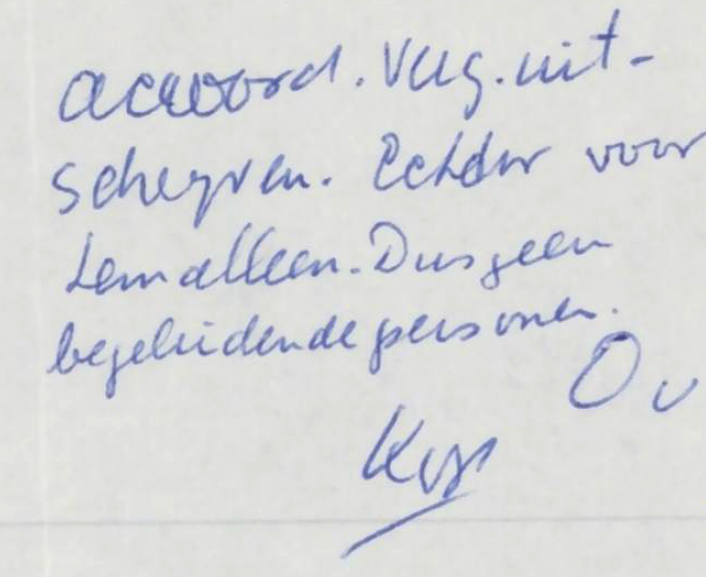 accoord. Vlg. uit-
schryven. Echter voor
hem alleen. Dus geen
begeleidende personen.